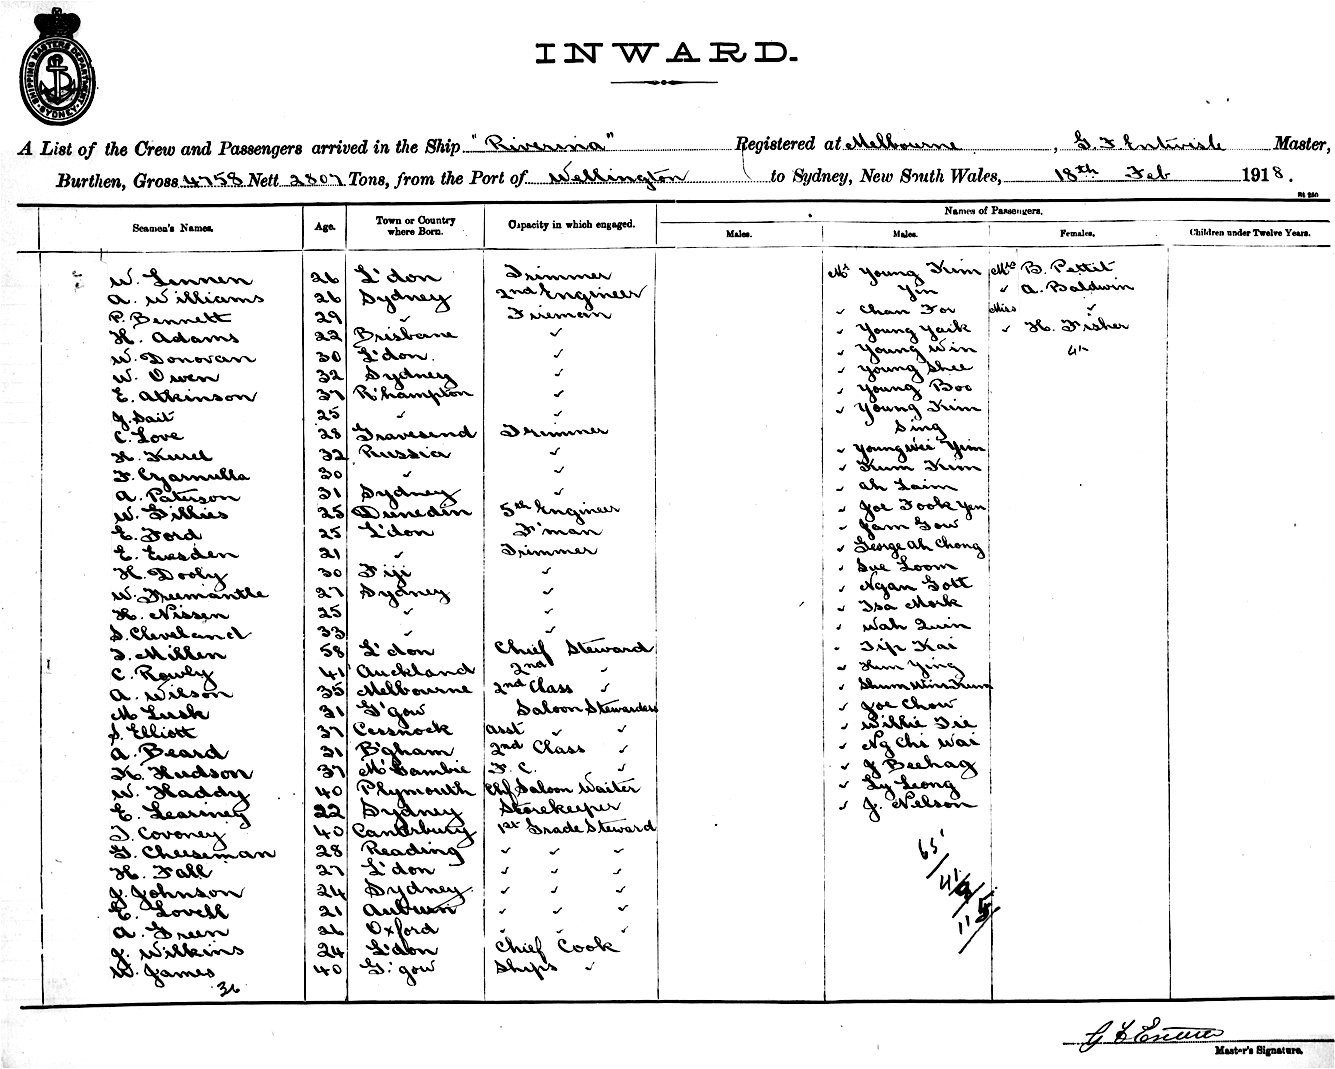 SHIPPING MASTERS DEPARTMENT SYDNEY
INWARD.
A List of the Crew and Passengers arrived in the Ship "Riverina" Registered at Melbourne, G. F Entwisle Master,
Burthen, Gross 4758 Nett 2807 Tons, from the Port of Wellington to Sydney, New South Wales, 18th Feb 1918.
Seamen's Names. Age. Town or Country where Born. Capacity in which engaged. Names of Passengers.
Males. Males. Females. Children under Twelve Years.
W. Linnen 26 L'don Trimmer Mr Young Kim Mrs B. Pettit
A. Williams 26 Sydney 2nd Engineer Yin ✓ A. Baldwin
P. Bennett 29 ✓ Fireman ✓ Chan For Miss ✓
H. Adams 22 Brisbane ✓ ✓ Young Yaik ✓ H. Fisher
W. Donovan 30 L'don. ✓ ✓ Young Win 4
W. Owen 32 Sydney ✓ ✓ Young Shee
E. Atkinson 37 R'hampton ✓ ✓ Young Boo
J. Sait 25 ✓ ✓ ✓ Young Kim
C. Love 28 Gravesend Trimmer Sing
H. Kurel 32 Russia ✓ ✓ Young Wei Yim
F. 30 ✓ ✓ ✓ Kum Kim
A. Paterson 31 Sydney ✓ ✓ Ah Laim
W. Gillies 25 Dunedin 5th Engineer ✓ Joe Fook Yen
E. Ford 25 L'don F'man ✓ Jam Gow
E. Evesden 21 ✓ Trimmer ✓ George Ah Chong
H. Dooly 30 Fiji ✓ ✓ Sue Loom
W. Fremantle 27 Sydney ✓ ✓ Ngan Gott
H. Nissen 25 ✓ ✓ ✓ Isa Mork
S. Cleveland 33 ✓ ✓ ✓ Wah Quin
T. Millen 58 L'don Chief Steward Tip Kai
C. Rowly 41 Auckland 2nd ✓ ✓ Hum Ying
A. Wilson 35 Melbourne 2nd Class ✓ ✓ Shum Win Kum
M Lusk 31 G'gow Saloon Stewardess ✓ Joe Chow
S. Elliott 37 Cessnock Asst ✓ ✓ ✓ Willie Tie
A. Beard 31 B'gham 2nd Class ✓ ✓ Ng Chi Wai
K. Hudson 37 McGambie F. C. ✓ ✓ J Beehag
W. Haddy 40 Plymouth Chf Saloon Waiter ✓ Ly Leong
E. Learing 22 Sydney Storekeeper ✓ J. Nelson
T. Covoney 40 Canterbury 1st Grade Steward
G. Cheeseman 28 Reading ✓ ✓ ✓ 65
H. Fall 27 L'don ✓ ✓ ✓ 41
J. Johnson 24 Sydney ✓ ✓ ✓
E. Lovell 21 Auburn ✓ ✓ ✓
A. Green 26 Oxford ✓ ✓ ✓ 115
J. Wilkins 24 L'don Chief Cook
W. James 40 G'gow Ships ✓
36
G F Entwisle
Master's Signature.